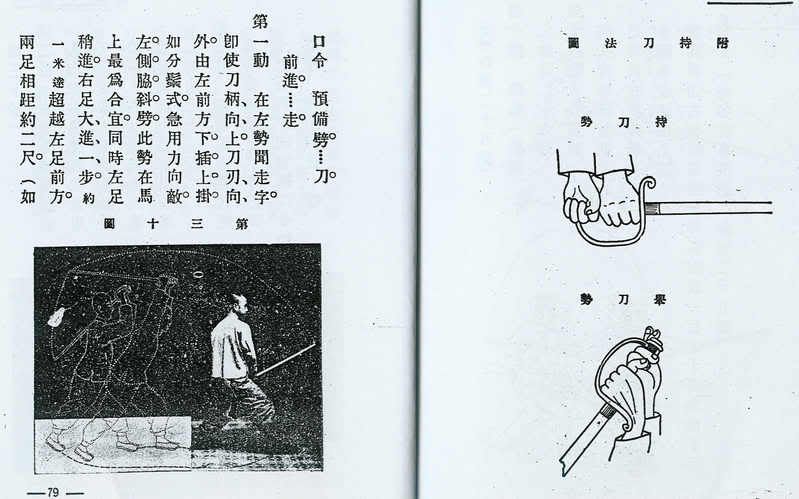 附持刀法圖
持刀勢
擧刀勢
口令　預備劈…刀。
前進…走。
第一動　在左勢聞走字。
卽使刀柄、向、上。刀刃、向、
外。由左前方下。插。上掛。
如分鬃式。急用力向敵。
左。側脇。斜。劈。此勢在馬
上最爲合宜。同時左足
稍進。右足大、進、一步。約
一米達超越左足前方。
兩足相距約二尺。（如
第三十圖
—79—